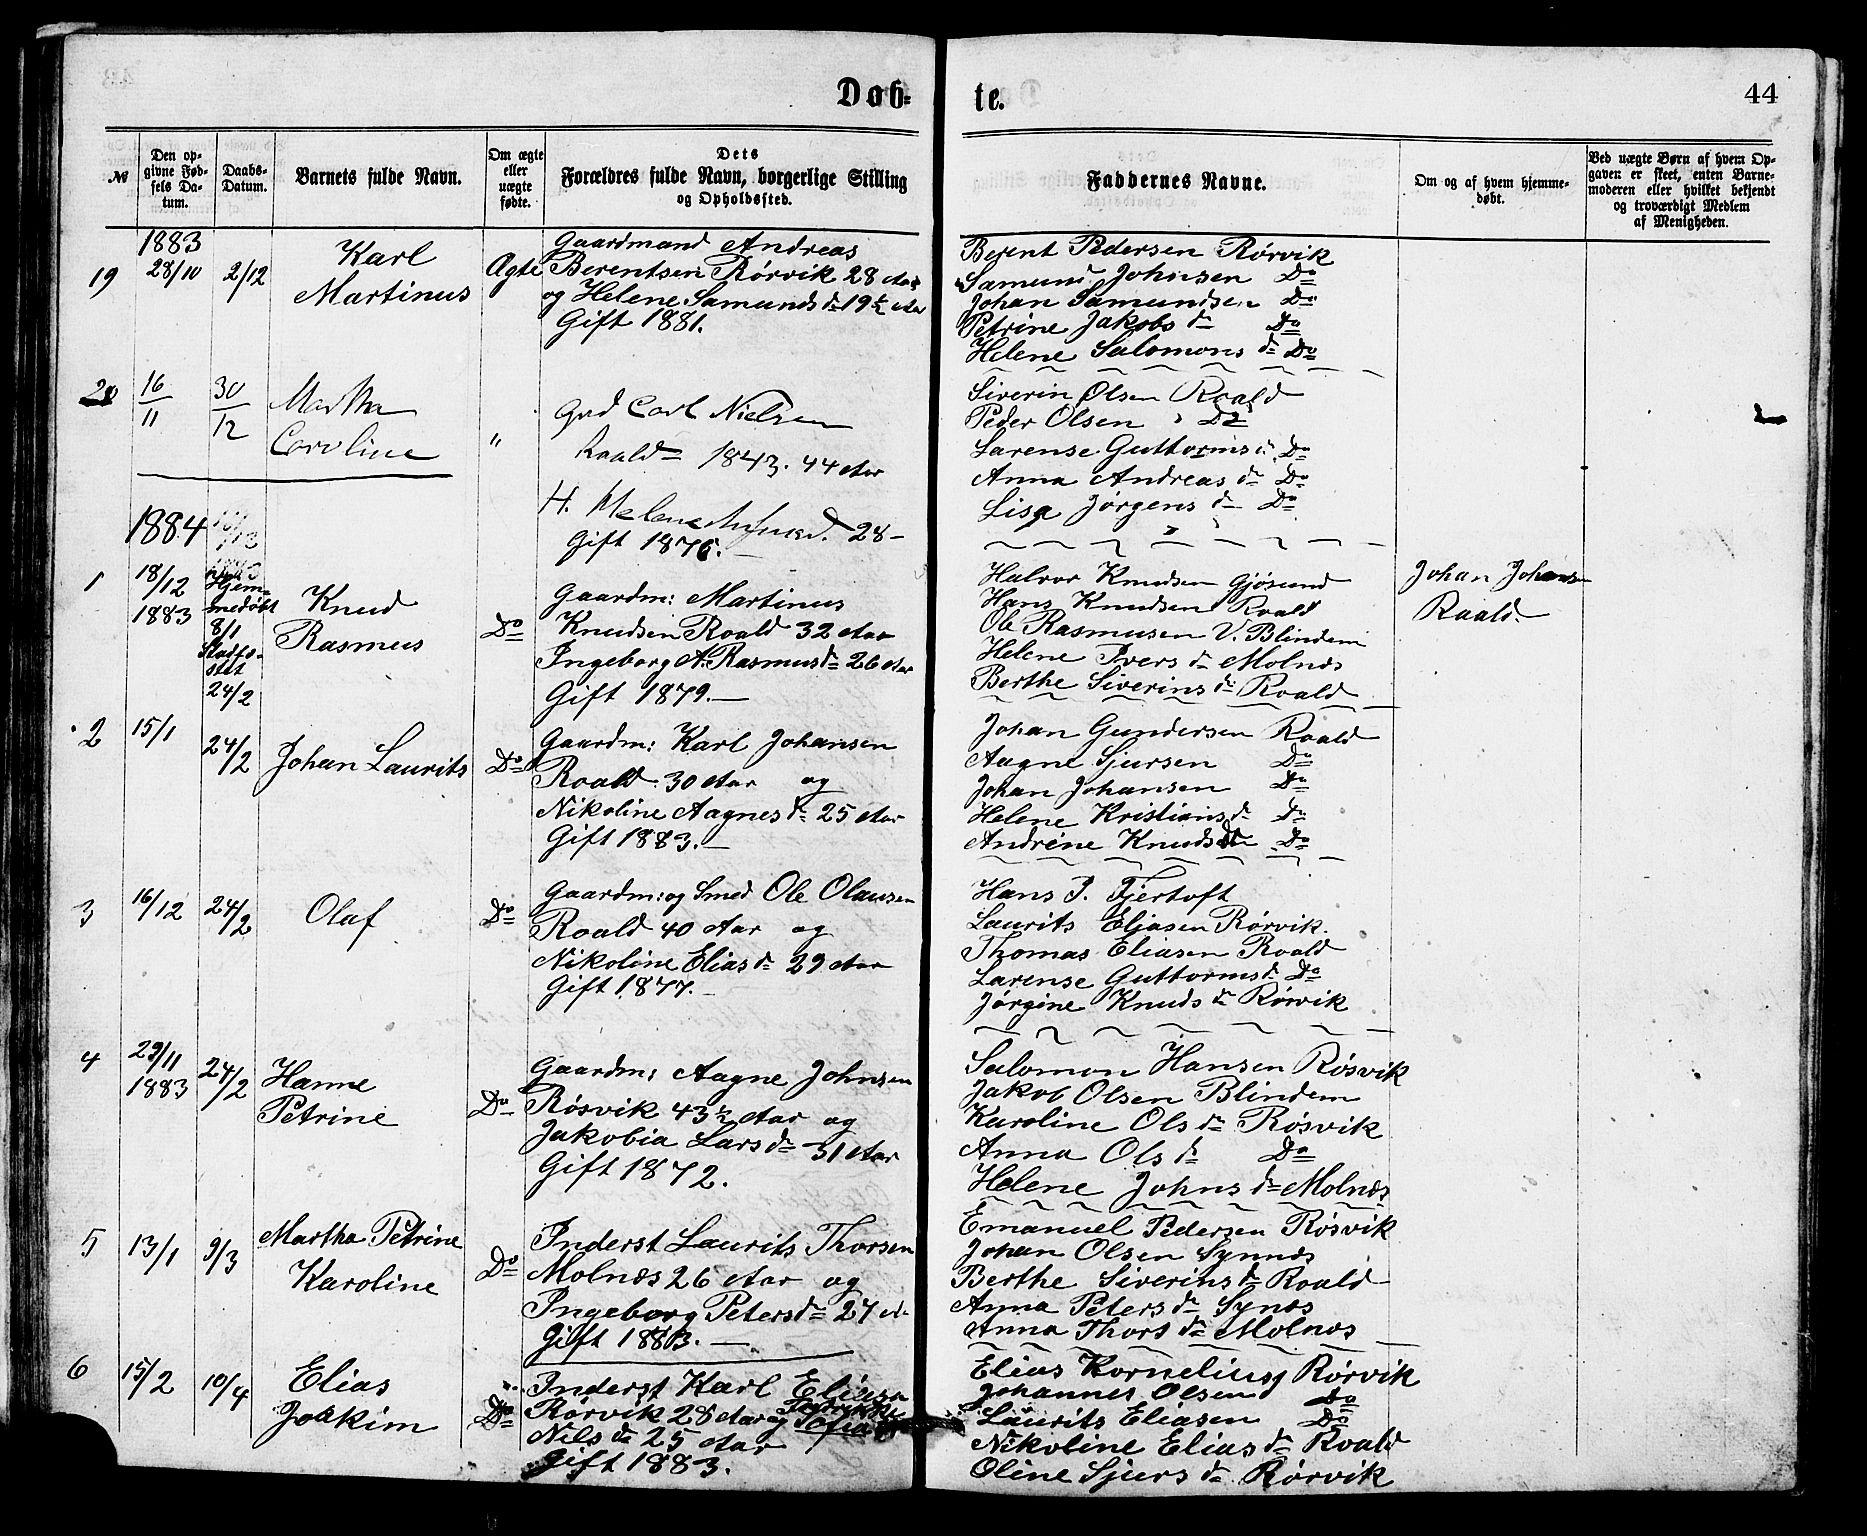 Døb-
te.
44
№
Den op-
givne Fød-
sels Da-
tum.
Daabs-
Datum.
Barnets fulde Navn.
Om ægte
eller
uægte
fødte.
Dets
Forældres fulde Navn, borgerlige Stilling
og Opholdssted.
Faddernes Navne.
Om og af hvem hjemme-
døbt.
Ved uægte Børn af hvem Op-
gaven er skeet, enten Barne-
moderen eller hvilket bekjendt
og troværdigt Medlem
af Menigheden.
1883
19
28/10
2/12
Karl
Martinus
Ægte
Gaardmand Andreas
Berentsen Rørvik 28 Aar
og Helene Samunds dr 19½ Aar
Gift 1881.
Berent Pedersen Rørvik
Samund Johnsen Do
Johan Samundsen Do
Petrine Jakobs dr Do
Helene Salomons dr Do
20
16/11
30/12
Martha
Caroline
"
Grd Carl Nielsen
Roald 1843. 44 Aar
H. Helene 28-
Gift 1876.
Siverin Olsen Roald
Peder Olsen Do
Larense Guttorms dr Do
Anna Andreas dr Do
Lisa Jørgens dr Do
1884
1
18/12
1883
Hjem-
medøbt
8/1
Stadfæ-
stet
24/2
Knud
Rasmus
Do
Gaardm: Martinus
Knudsen Roald 32 Aar
Ingeborg A. Rasmus dr 26 Aar
Gift 1879.
Halvor Knudsen Gjøsund
Hans Knudsen Roald
Ole Rasmusen V. Blindem
Helene Ivers dr Molnæs
Berthe Siverins dr Roald
Johan Johansen
Roald.
2
15/1
24/2
Johan Laurits
Do
Gaardm: Karl Johansen
Roald 30 Aar og
Nikoline Aagnes dr 25 Aar
Gift 1883.
Johan Gundersen Roald
Aagne Sjursen Do
Johan Johansen Do
Helene Kristians dr Do
Andrine Knuds dr Do
3
16/12
24/2
Olaf
Do
Gaardm: og Smed Ole Olausen
Roald 40 Aar og
Nikoline Elias dr 29 Aar
Gift 1877.
Hans P. Fjertoft
Laurits Eliasen Rørvik.
Thomas Eliasen Roald
Larense Guttorms dr Do
Jørgine Knuds dr Rørvik
4
29/11
1883
24/2
Hanne
Petrine
Do
Gaardm: Aagne Johnsen
Røsvik 43½ Aar og
Jakobia Lars dr 31 Aar
Gift 1872.
Salomon Hansen Røsvik
Jakob Olsen Blindem
Karoline Ols dr Røsvik
Anna Ols dr Do
Helene Johns dr Molnæs
5
13/1
9/3
Martha Petrine
Karoline
Do
Inderst Laurits Thorsen
Molnæs 26 Aar og
Ingeborg Peters dr 27 A.
Gift 1883.
Emanuel Pedersen Røsvik
Johan Olsen Synnæs
Berthe Siverins dr Roald
Anna Peters dr Synæs
Anna Thors dr Molnæs
6
15/2
10/4
Elias
Joakim
Do
Inderst Karl Eliasen
Rørvik 28 Aar og Sofia
Nils dr 25 Aar
Gift 1883.
Elias Kornelius Rørvik
Johannes Olsen Do
Laurits Eliasen Do
Nikoline Elias dr Roald
Oline Sjurs dr Rørvik